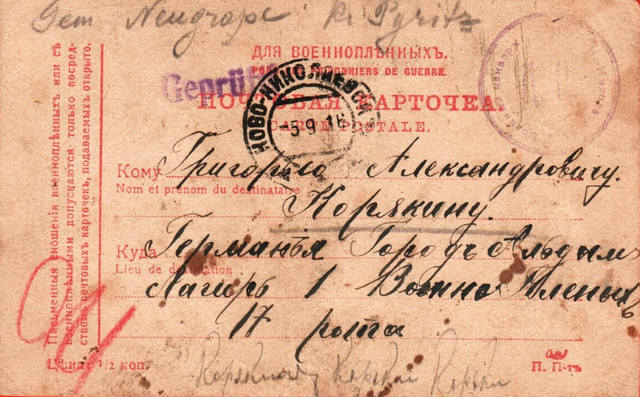 Gem Neugrape Kr Pyritz
ДЛЯ ВОЕННОПЛѢННЫХЪ.
POUR PRISONNIERS DE GUERRE.
Geprüft
ПОЧТОВАЯ КАРТОЧКА.
CARTE POSTALE.
НОВО-НИКОЛАЕВСКЪ
-5.9.16
Кому Григорью Александровичу.
Nom et prénom du destinataire
Корякину.
Куда Германья Городъ Альдам
Lieu de destination
Лагирь 1 Военно Пленыхъ
17 рота
Цѣна 1 1/2 коп.
П. П-тъ
Письменныя сношенія военноплѣнныхъ или съ
военноплѣнными допускаются только посред-
ствомъ почтовыхъ карточекъ, подаваемыхъ открыто.